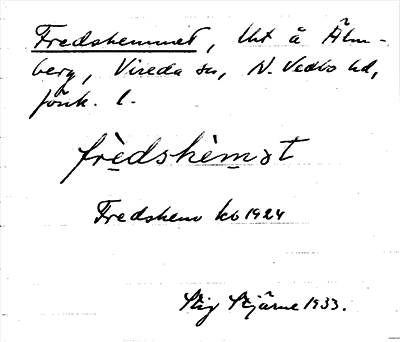 Fredshemmet, Uxt å Älm-
berg, Vireda sn, N. Vedbo hd,
Jönk. l.
frèdshèmət
Fredshem kb 1924
Stig Stjärne 1933.